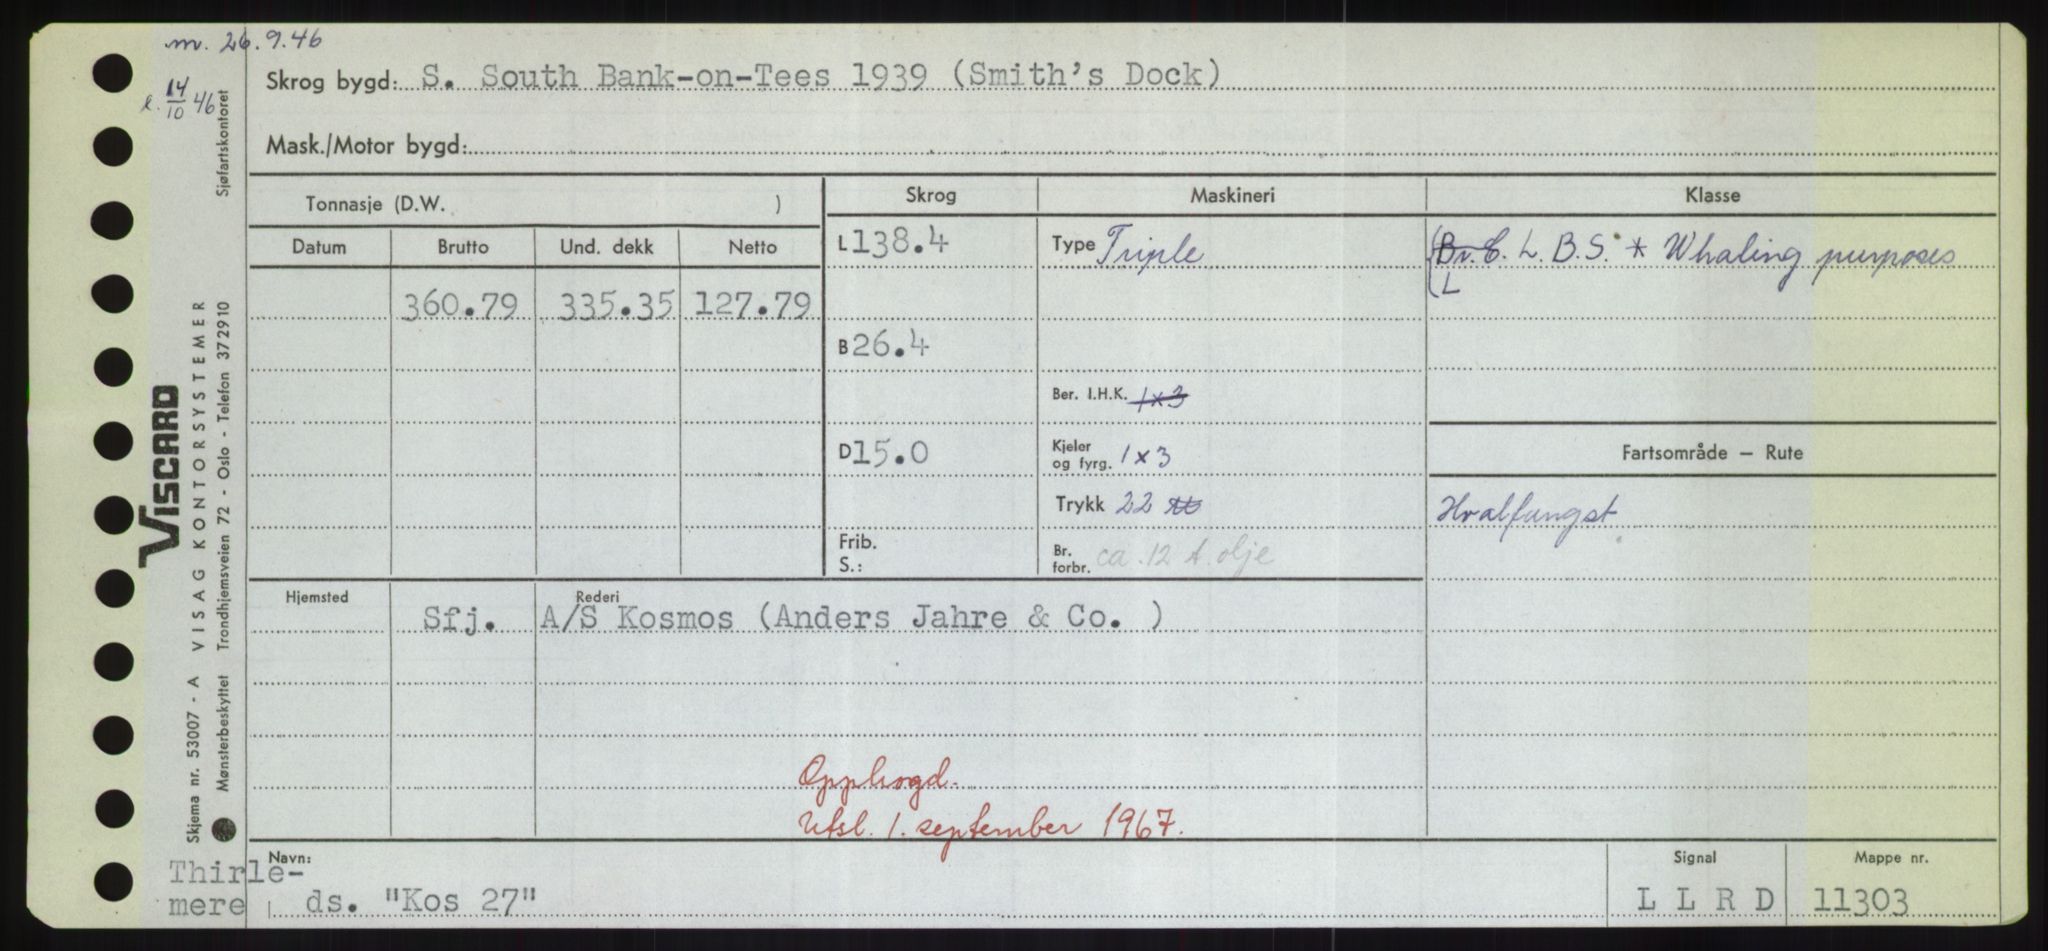 m. 26.9.46
Skrog bygd: S. South Bank-on-Tees 1939 (Smith's Dock)
14/10 46
Mask./Motor bygd:
Sjøfartskontoret
Skjema nr. 53007 - A VISAG KONTORSYSTEMER
Mønsterbeskyttet Trondhjemsveien 72 - Oslo - Telefon 372910
VISCARD
Tonnasje (D.W. )
Skrog Maskineri Klasse
Datum Brutto Und. dekk Netto
L 138.4
Type Triple
Br. C. L. B.S. * Whaling purposes
L
360.79 335.35 127.79
B 26.4
Ber. I.H.K. 1x3
D 15.0
Kjeler
og fyrg. 1x3
Fartsområde – Rute
Trykk 22
Hvalfangst
Frib.
S.:
Br.
forbr. ca. 12 t. olje
Hjemsted Rederi
Sfj. A/S Kosmos (Anders Jahre & Co. )
Opphogd.
Utsl. 1. september 1967.
Thirle-
mere
Navn:
ds. "Kos 27"
Signal
L L R D
Mappe nr.
11303